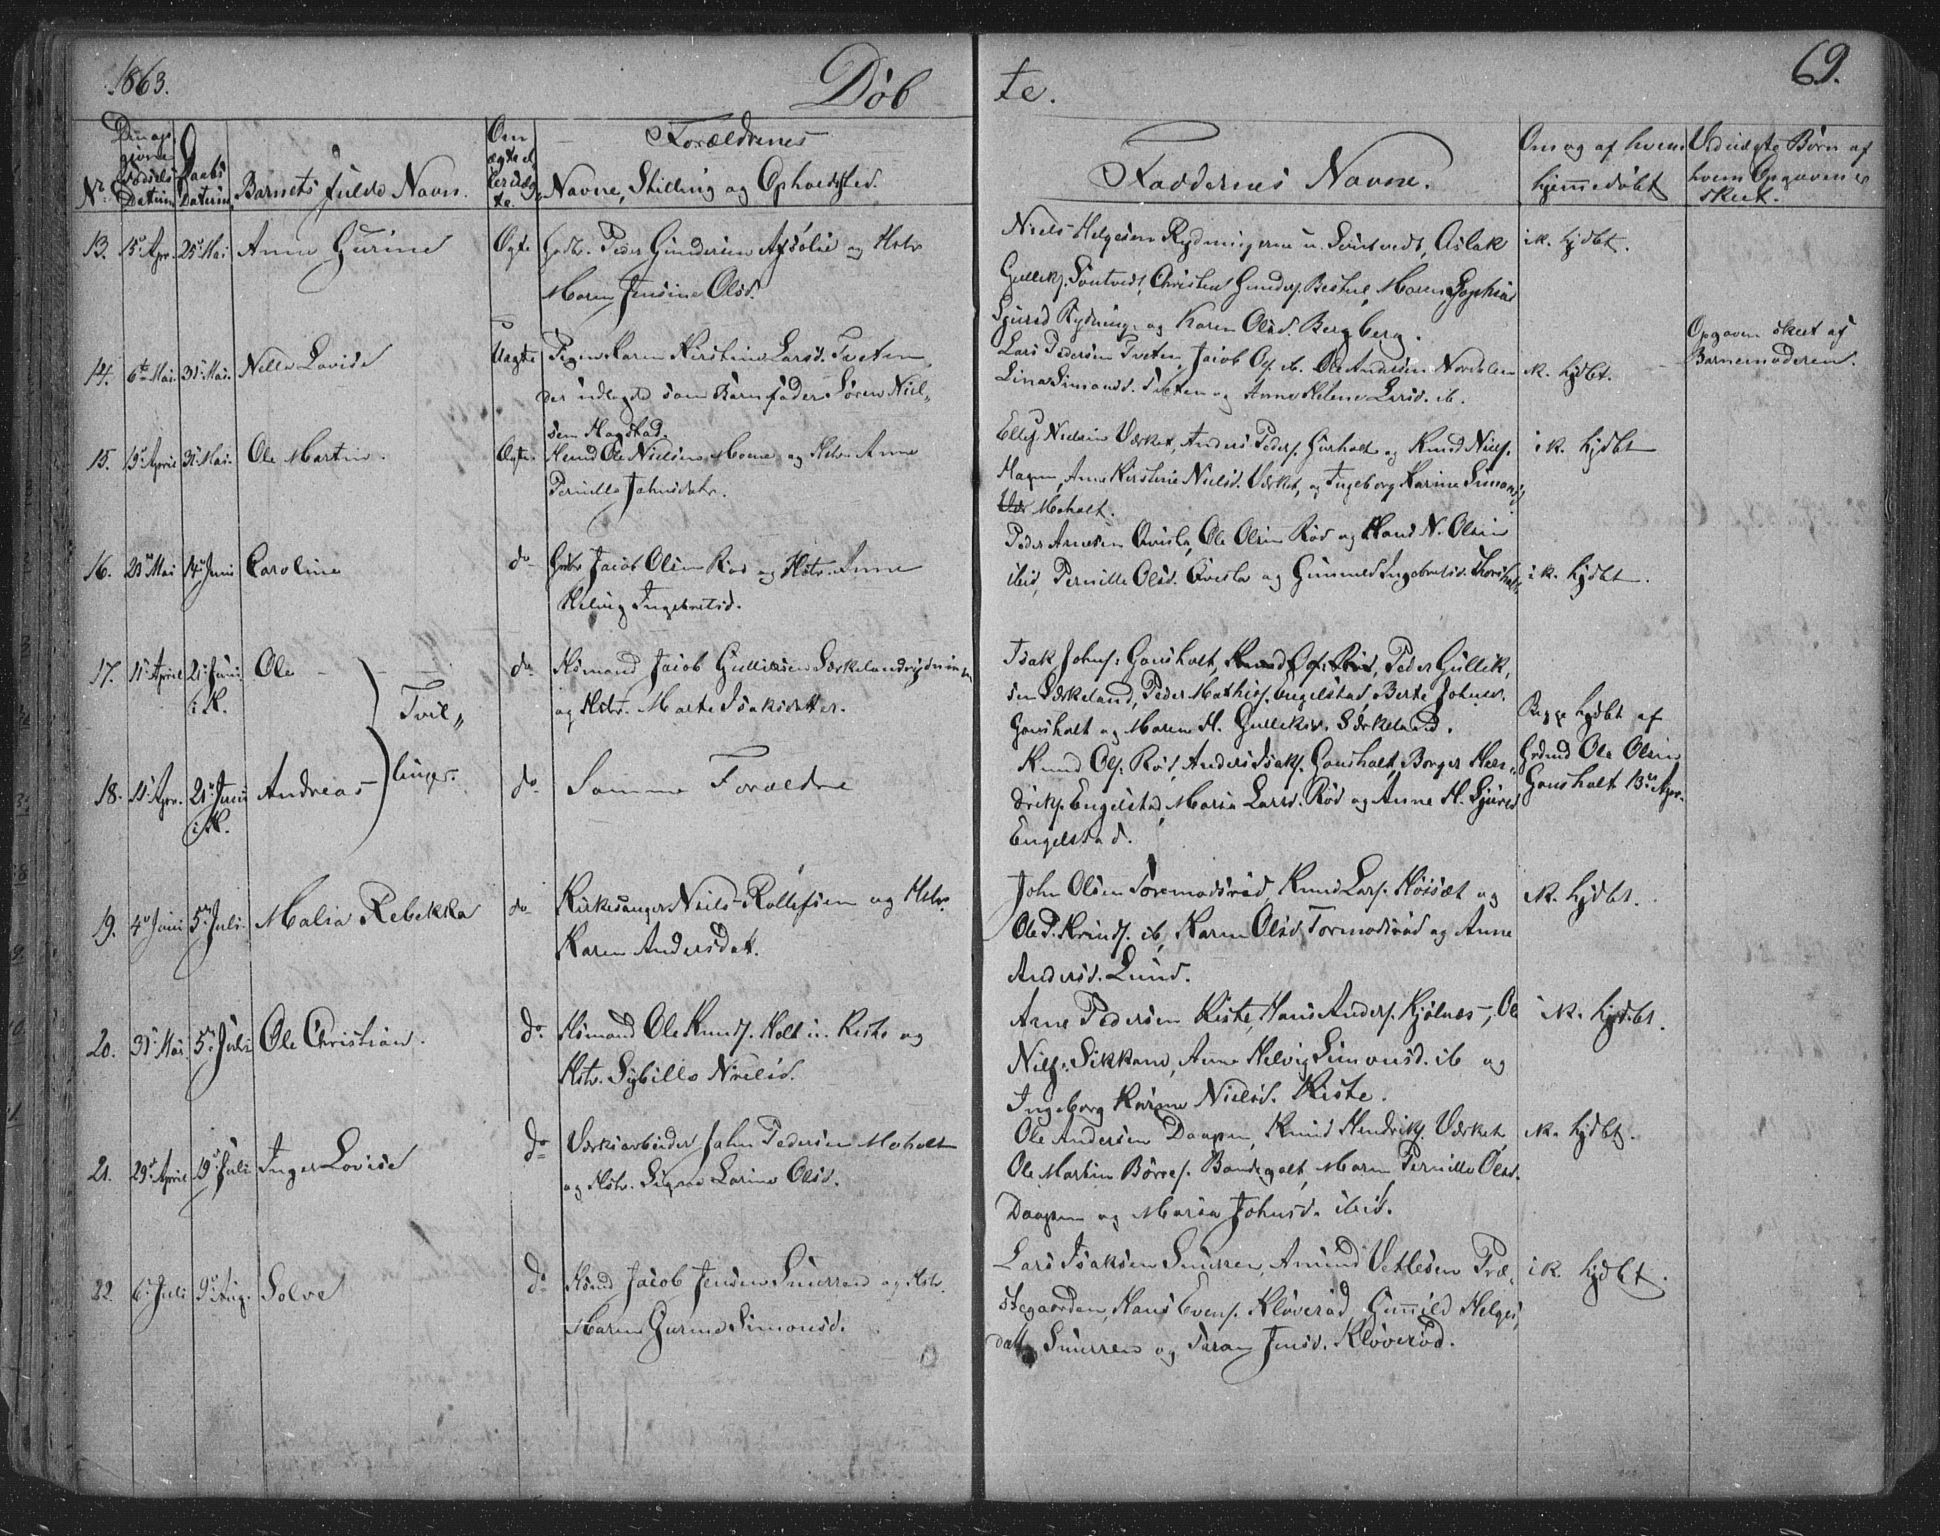 1863.
Døbte.
69.
No
Den opgivne Fødsels Datum
Daabs Datum
Barnets fulde Navn.
Om ægte el. uægte.
Forældrenes
Navne, Stilling og Opholdsted.
Faddernes Navne.
Om og af hvem hjemmedøbt
Uægte Børn af hvem Opgaven er skeet.
13. 15de Apr. 25de Mai Anne Gurine Ægte Gdbr. Peder Gundersen Assólie og Hstr.
Maren Jensine Olsd.
Niels Helgesen Rydningerne u. Sóntvedt, Aslak
Gulliks. Sóntvedt, Christen Gunders. Bestul, Maren Sophia
Sjursd Rydning. og Karen Olsd. Bergberg.
ik. hjdbt.
14. 6te Mai 31te Mai. Nella Lovise Uægte Pigen Karen Kirstine Larsd. Tveten
der udlagde som Barnefader Søren Niel-
sen Hagstad.
Lars Pedersen Tveten, Jacob Os. ib. Ole Andersen Nordalen
Lina Simonsd. Tveten og Anne Helene Larsd. ib.
ik. hjdbt.
Opgaven skeet af
Barnemoderen.
15. 13de April 31te Mai. Ole Martin. Ægte. Hsmd Ole Nielsen Moene og Hstr. Anne
Pernille Johnsdatr.
Ellef Nielsen Værket, Anders Peders. Gurholt og Knud Niels.
Hagen, Anne Kirstine Nielsd. Værket, og Ingeborg Karine Simonsd.
Moholt.
ik. hjdbt
16. 23de Mai 14de Juni Caroline do Gdbr Jacob Olsen Rød og Hstr. Anne
Helvig Ingebretsd.
Peder Arnesen Qvisla, Ole Olsen Rød og Hans N. Olsen
ibid, Pernille Olsd. Qvisla og Gunnild Ingebretsd. Thorsholt
ik. hjdbt.
17. 11te April 21de Juni i K. Ole do Hsmand Jacob Gulliksen Særkelandrydningen
og Hstr. Marte Isaksdatter.
Isak Johns. Gausholt, Knud Ols. Rød, Peder Gullik-
sen Særkeland, Peder Mathis. Engelstad, Berte Johnsd.
Gausholt og Maren H. Gulliksd. Særkeland.
Tvil-
linger.
Begge hjdbt af
Grdmd Ole Olsen
Gausholt 13de Apr.
18. 11te Apr. 21de Juni i K. Andreas do Samme Forældre
Knud Ols. Rød, Anders Isaks. Gausholt, Borger Hen-
driks. Engelstad, Maria Larsd. Rød og Anne H. Sjursd
Engelstad.
19. 4de Juni 5te Juli. Malia Rebekka do Kirkesanger Niels Rollefsen og Hstr.
Karen Andersdat.
John Olsen Tormodsrød, Knud Lars. Høisæt og
Ole P. Knuds. ib, Karen Olsd. Tormodsrød og Anne
Andersd. Lund.
ik. hjdbt.
20. 31te Mai 5te Juli Ole Christian. do Hsmand Ole Knuds. Holt u. Kiste og
Hstr. Sybille Nielsd.
Arne Pedersen Kiste, Hans Anders. Kjølnes, Ole
Niels. Sikkane, Anne Helvig Simonsd. ib og
Ingeborg Karine Nielsd. Kiste.
ik. hjdbt.
21. 29de April 19de Juli Inger Lovise do Værksarbeider John Pedersen Moholt
og Hstr. Signe Larine Olsd.
Ole Andersen Daapen, Knud Hendriks. Værket,
Ole Martin Børres. Bandegalt, Maren Pernille Olsd.
Daapen og Maria Johnsd. ibid.
ik. hjdbt.
22. 6te Juli 9de Aug. Solve do Hsmd Jacob Jensen Snurren og Hstr.
Maren Gurine Simonsd.
Lars Isaksen Snurren, Amund Vetlesen Præ-
stegaarden, Hans Evens. Kløverød, Gunnild Helges-
datt. Snurren og Taran Jensd. Kløverød.
ik. hjdbt.